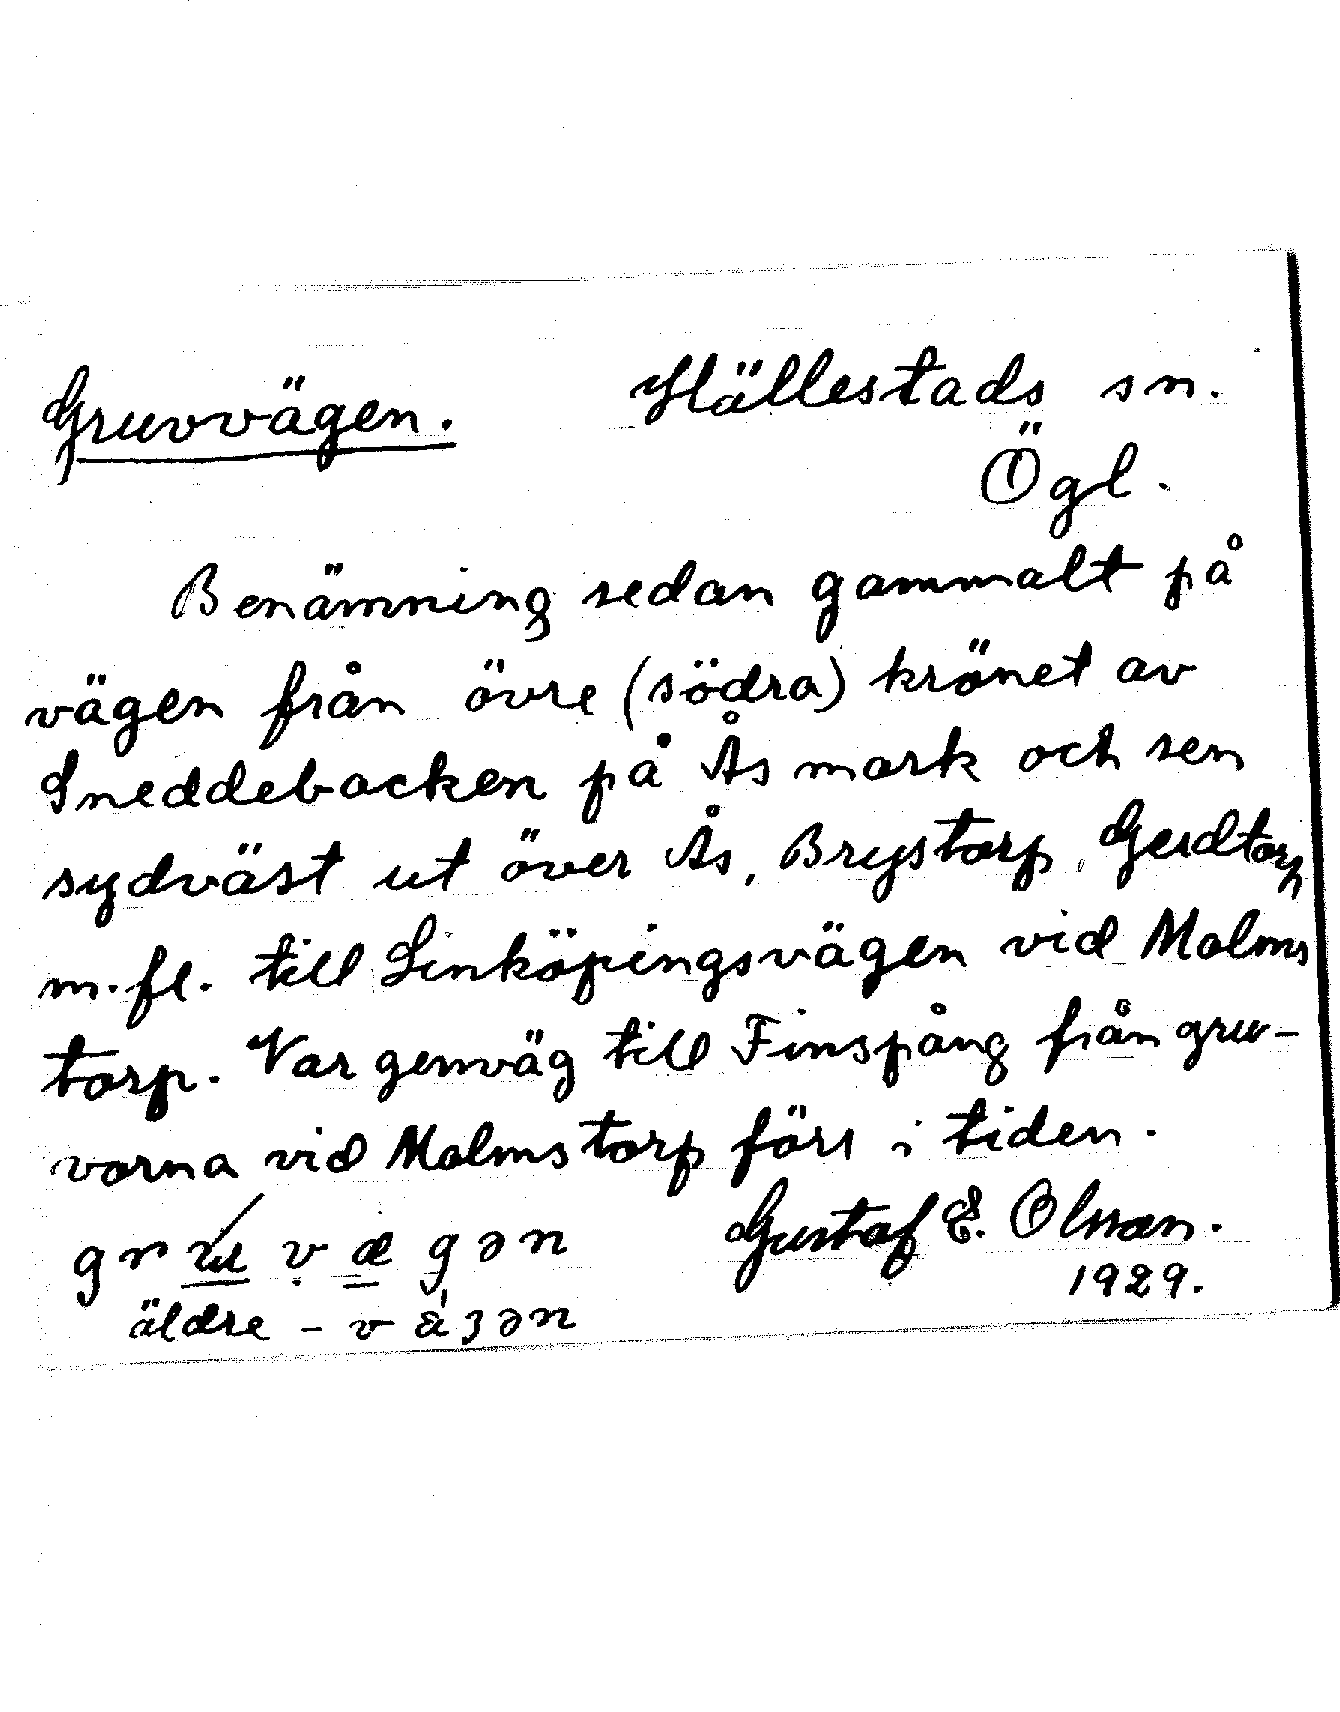 Gruvvägen. Hällestads sn.
Ögl.
Benämning sedan gammalt på
vägen från övre (södra) krönet av
Sneddebacken på Ås mark och sen
sydväst ut över Ås, Brystorp, Gerdtorp
m.fl. till Linköpingsvägen vid Malms
torp. Var genväg till Finspång från gru-
vorna vid Malmstorp förr i tiden.
Gustaf E. Olsson.
1929.
äldre